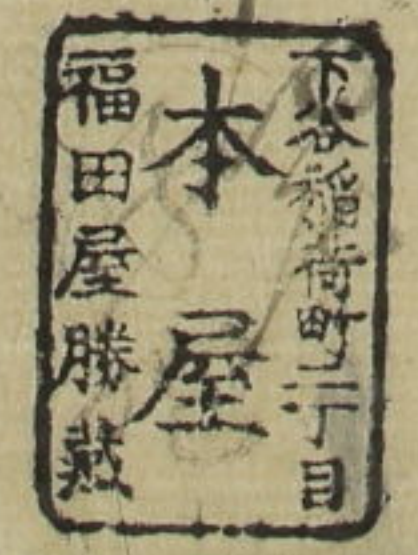 下谷稲荷町二丁目
本屋
福田屋勝蔵